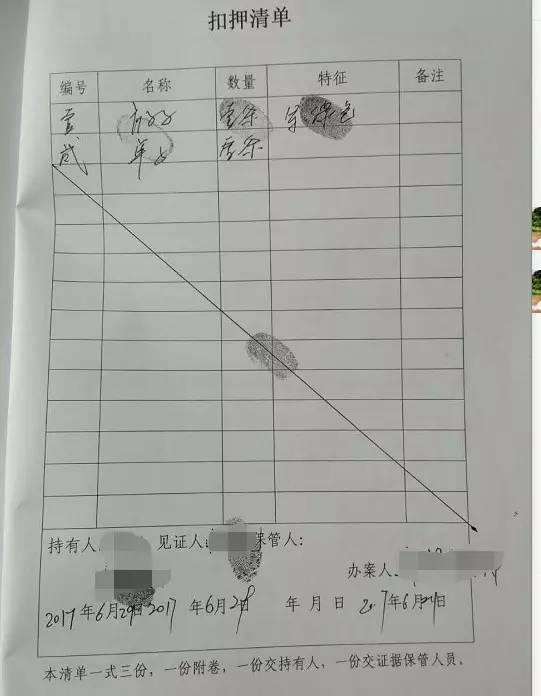 扣押清单
编号 名称 数量 特征 备注
壹 壹条 绿色
贰 壹条
持有人 见证人: 保管人:
办案人
2017年6月29日 2017年6月29日 年 月 日 2017年6月29日
本清单一式三份，一份附卷，一份交持有人，一份交证据保管人员。